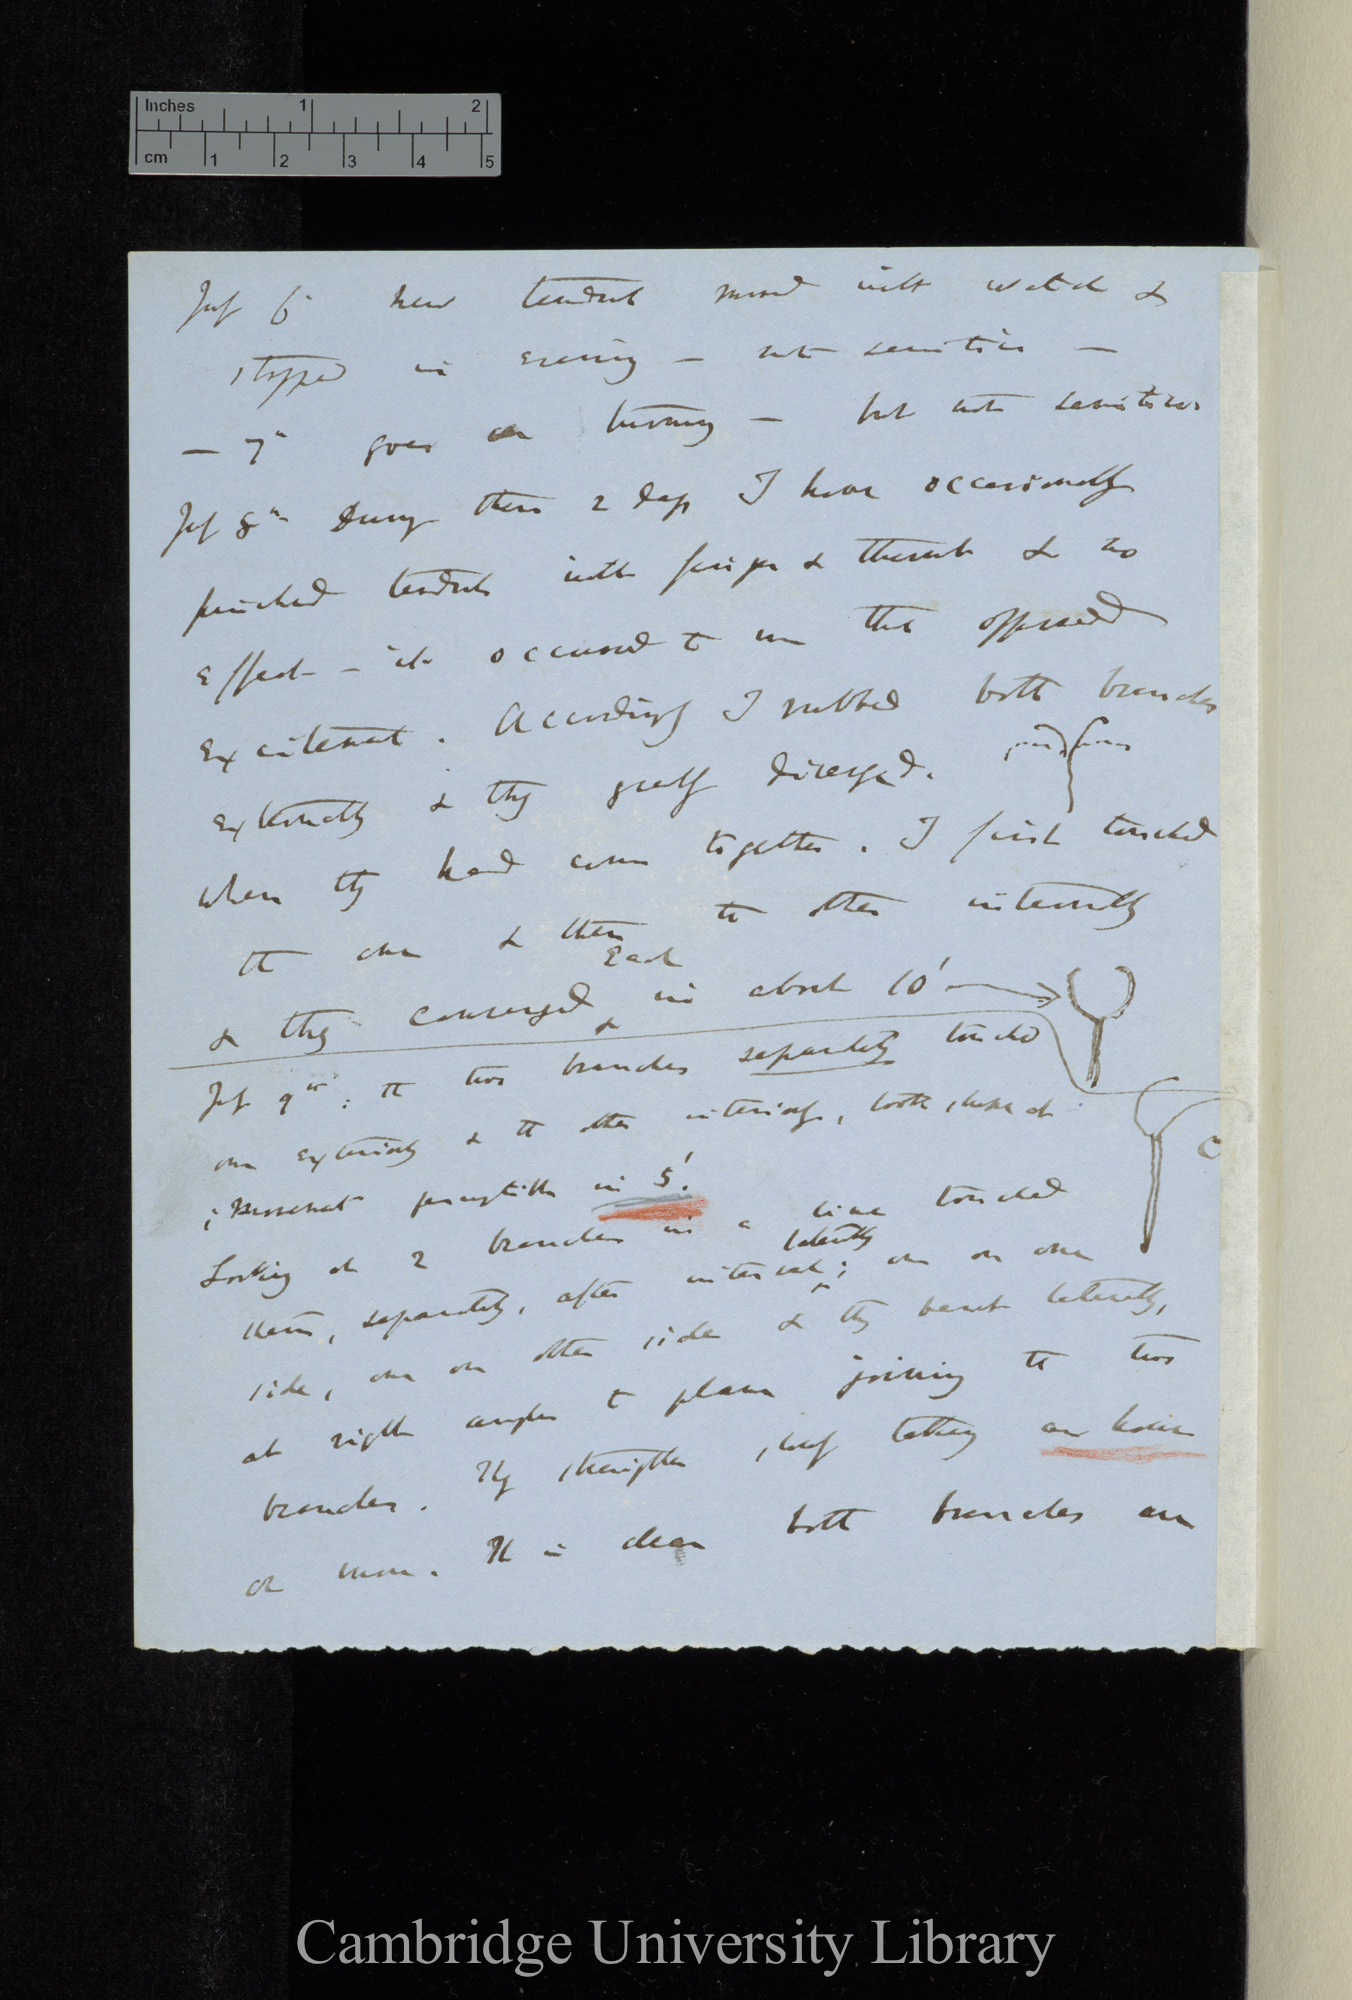 Inches 1 2
cm 1 2 3 4 5
July 6 new tendril moved with watch &
stopped in evening — not sensitive —
— 7th goes on turning — but not sensitive
July 8th During these 2 days I have occasionally
pinched tendrils with finger & thumb & no
effect — it occurred to me that opposed
excitement. Accordingly I rubbed both branches
externally & they greatly diverged.
When they had come together. I first touched
the one & then the other internally
& they converged each in about 10'
July 9th: the two branches separately touched
one exteriorly & the other interiorly, took shape at C
; Movement perceptible in 5'.
Looking at 2 branches in a line touched
them, separately, after interval; laterally one on one
side, one on other side & they bent laterally,
at right angles to plane joining the two
branches. They straighten slowly taking an hour
or more. It is clear both branches are
Cambridge University Library